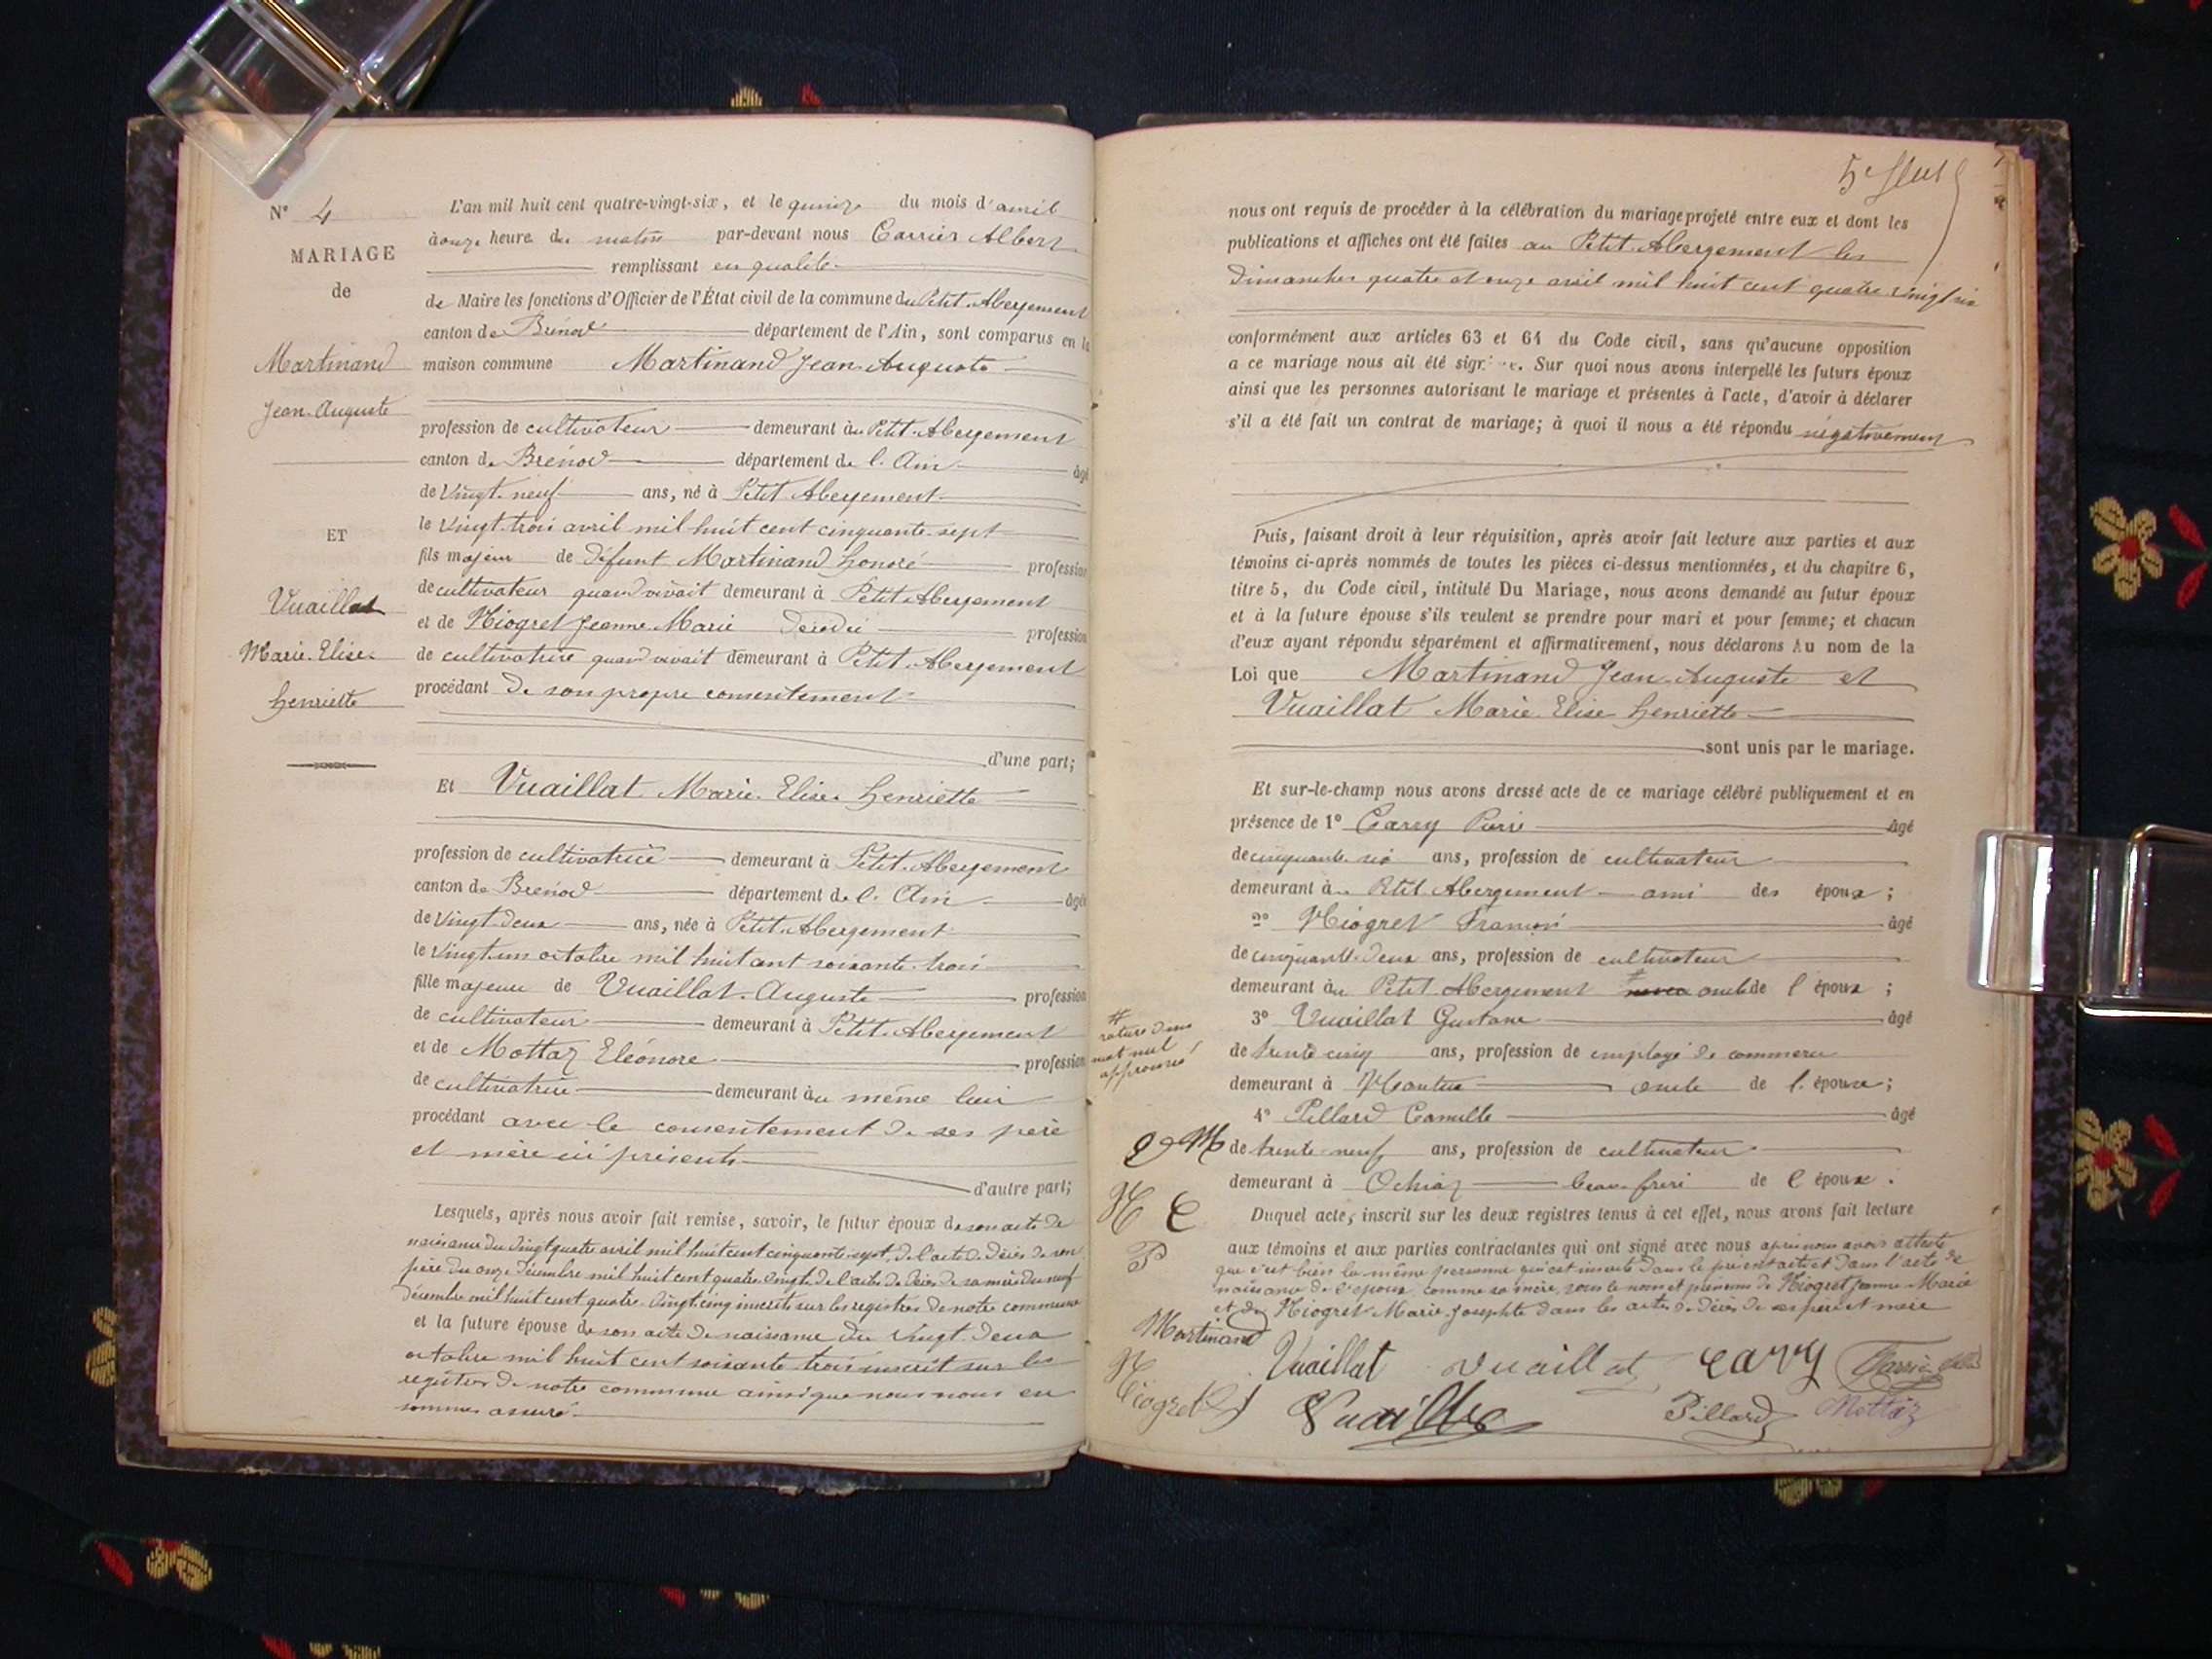 N° 4
MARIAGE
de
Martinand
Jean-Auguste
ET
Vuaillat
Marie-Elise-
henriette
L'an mil huit cent quatre-vingt-six, et le quinze du mois d'avril
à onze heure du matin par-devant nous Carrier Albert
remplissant en qualité
de Maire les fonctions d'Officier de l'État civil de la commune du Petit-Abergement
canton de Brénod département de l'Ain, sont comparus en la
maison commune Martinand Jean-Auguste
profession de cultivateur demeurant à Petit-Abergement
canton de Brénod département de l'Ain âgé
de Vingt-neuf ans, né à Petit Abergement
le vingt-trois avril mil huit cent cinquante-sept
fils majeur de défunt Martinand honoré profession
de cultivateur quand vivait demeurant à Petit-Abergement
et de Miogret Jeanne-Marie décédée profession
de cultivatrice quand vivait demeurant à Petit-Abergement
procédant de son propre consentement
d'une part;
Et Vuaillat Marie-Elise-henriette
profession de cultivatrice demeurant à Petit-Abergement
canton de Brénod département de l'Ain âgée
de vingt-deux ans, née à Petit-Abergement
le vingt-un octobre mil huit cent soixante-trois
fille majeure de Vuaillat-Auguste profession
de cultivateur demeurant à Petit-Abergement
et de Mottaz Eléonore profession
de cultivatrice demeurant au même lieu
procédant avec le consentement de ses père
et mère ici présents
d'autre part;
Lesquels, après nous avoir fait remise, savoir, le futur époux de son acte de
naissance du vingt quatre avril mil huit cent cinquante-sept, de l'acte de décès de son
père du onze décembre mil huit cent quatre-vingt de l'acte de décès de sa mère du neuf
décembre mil huit cent quatre-vingt-cinq inscrits sur les registres de notre commune
et la future épouse de son acte de naissance du vingt-deux
octobre mil huit cent soixante trois inscrit sur les
registres de notre commune ainsi que nous nous en
sommes assuré
5e
nous ont requis de procéder à la célébration du mariage projeté entre eux et dont les
publications et affiches ont été faites au Petit-Abergement les
dimanches quatre et onze avril mil huit cent quatre vingt six
conformément aux articles 63 et 64 du Code civil, sans qu'aucune opposition
a ce mariage nous ait été signifiée. Sur quoi nous avons interpellé les futurs époux
ainsi que les personnes autorisant le mariage et présentes à l'acte, d'avoir à déclarer
s'il a été fait un contrat de mariage; à quoi il nous a été répondu négativement
Puis, faisant droit à leur réquisition, après avoir fait lecture aux parties et aux
témoins ci-après nommés de toutes les pièces ci-dessus mentionnées, et du chapitre 6,
titre 5, du Code civil, intitulé Du Mariage, nous avons demandé au futur époux
et à la future épouse s'ils veulent se prendre pour mari et pour femme; et chacun
d'eux ayant répondu séparément et affirmativement, nous déclarons Au nom de la
Loi que Martinand Jean-Auguste et
Vuaillat Marie-Elise-henriette
sont unis par le mariage.
Et sur-le-champ nous avons dressé acte de ce mariage célébré publiquement et en
présence de 1° Carry Pierre âgé
de cinquante-six ans, profession de cultivateur
demeurant à Petit Abergement ami des époux;
2° Miogret François âgé
de cinquante-deux ans, profession de cultivateur
demeurant au Petit Abergement # oncle de l'époux;
3° Vuaillat Gustave âgé
de trente cinq ans, profession de employé de commerce
demeurant à Nantua oncle de l'épouse;
4° Pillard Camille âgé
de trente-neuf ans, profession de cultivateur
demeurant à Ochiaz beau-frère de l'époux.
# rature d'un
mot nul
approuvé
Duquel acte, inscrit sur les deux registres tenus à cet effet, nous avons fait lecture
aux témoins et aux parties contractantes qui ont signé avec nous après nous avoir attesté
que c'est bien la même personne qui est inscrite dans le présent acte et dans l'acte de
naissance de l'époux comme sa mère, sous le nom et prénoms de Miogret Jeanne-Marie
et de Miogret Marie-Josephte dans les actes de décès de ses père et mère
M
C
P
Martinand Vuaillat Vuaillat Carry
Miogret Vuaillat Pillard Mottaz